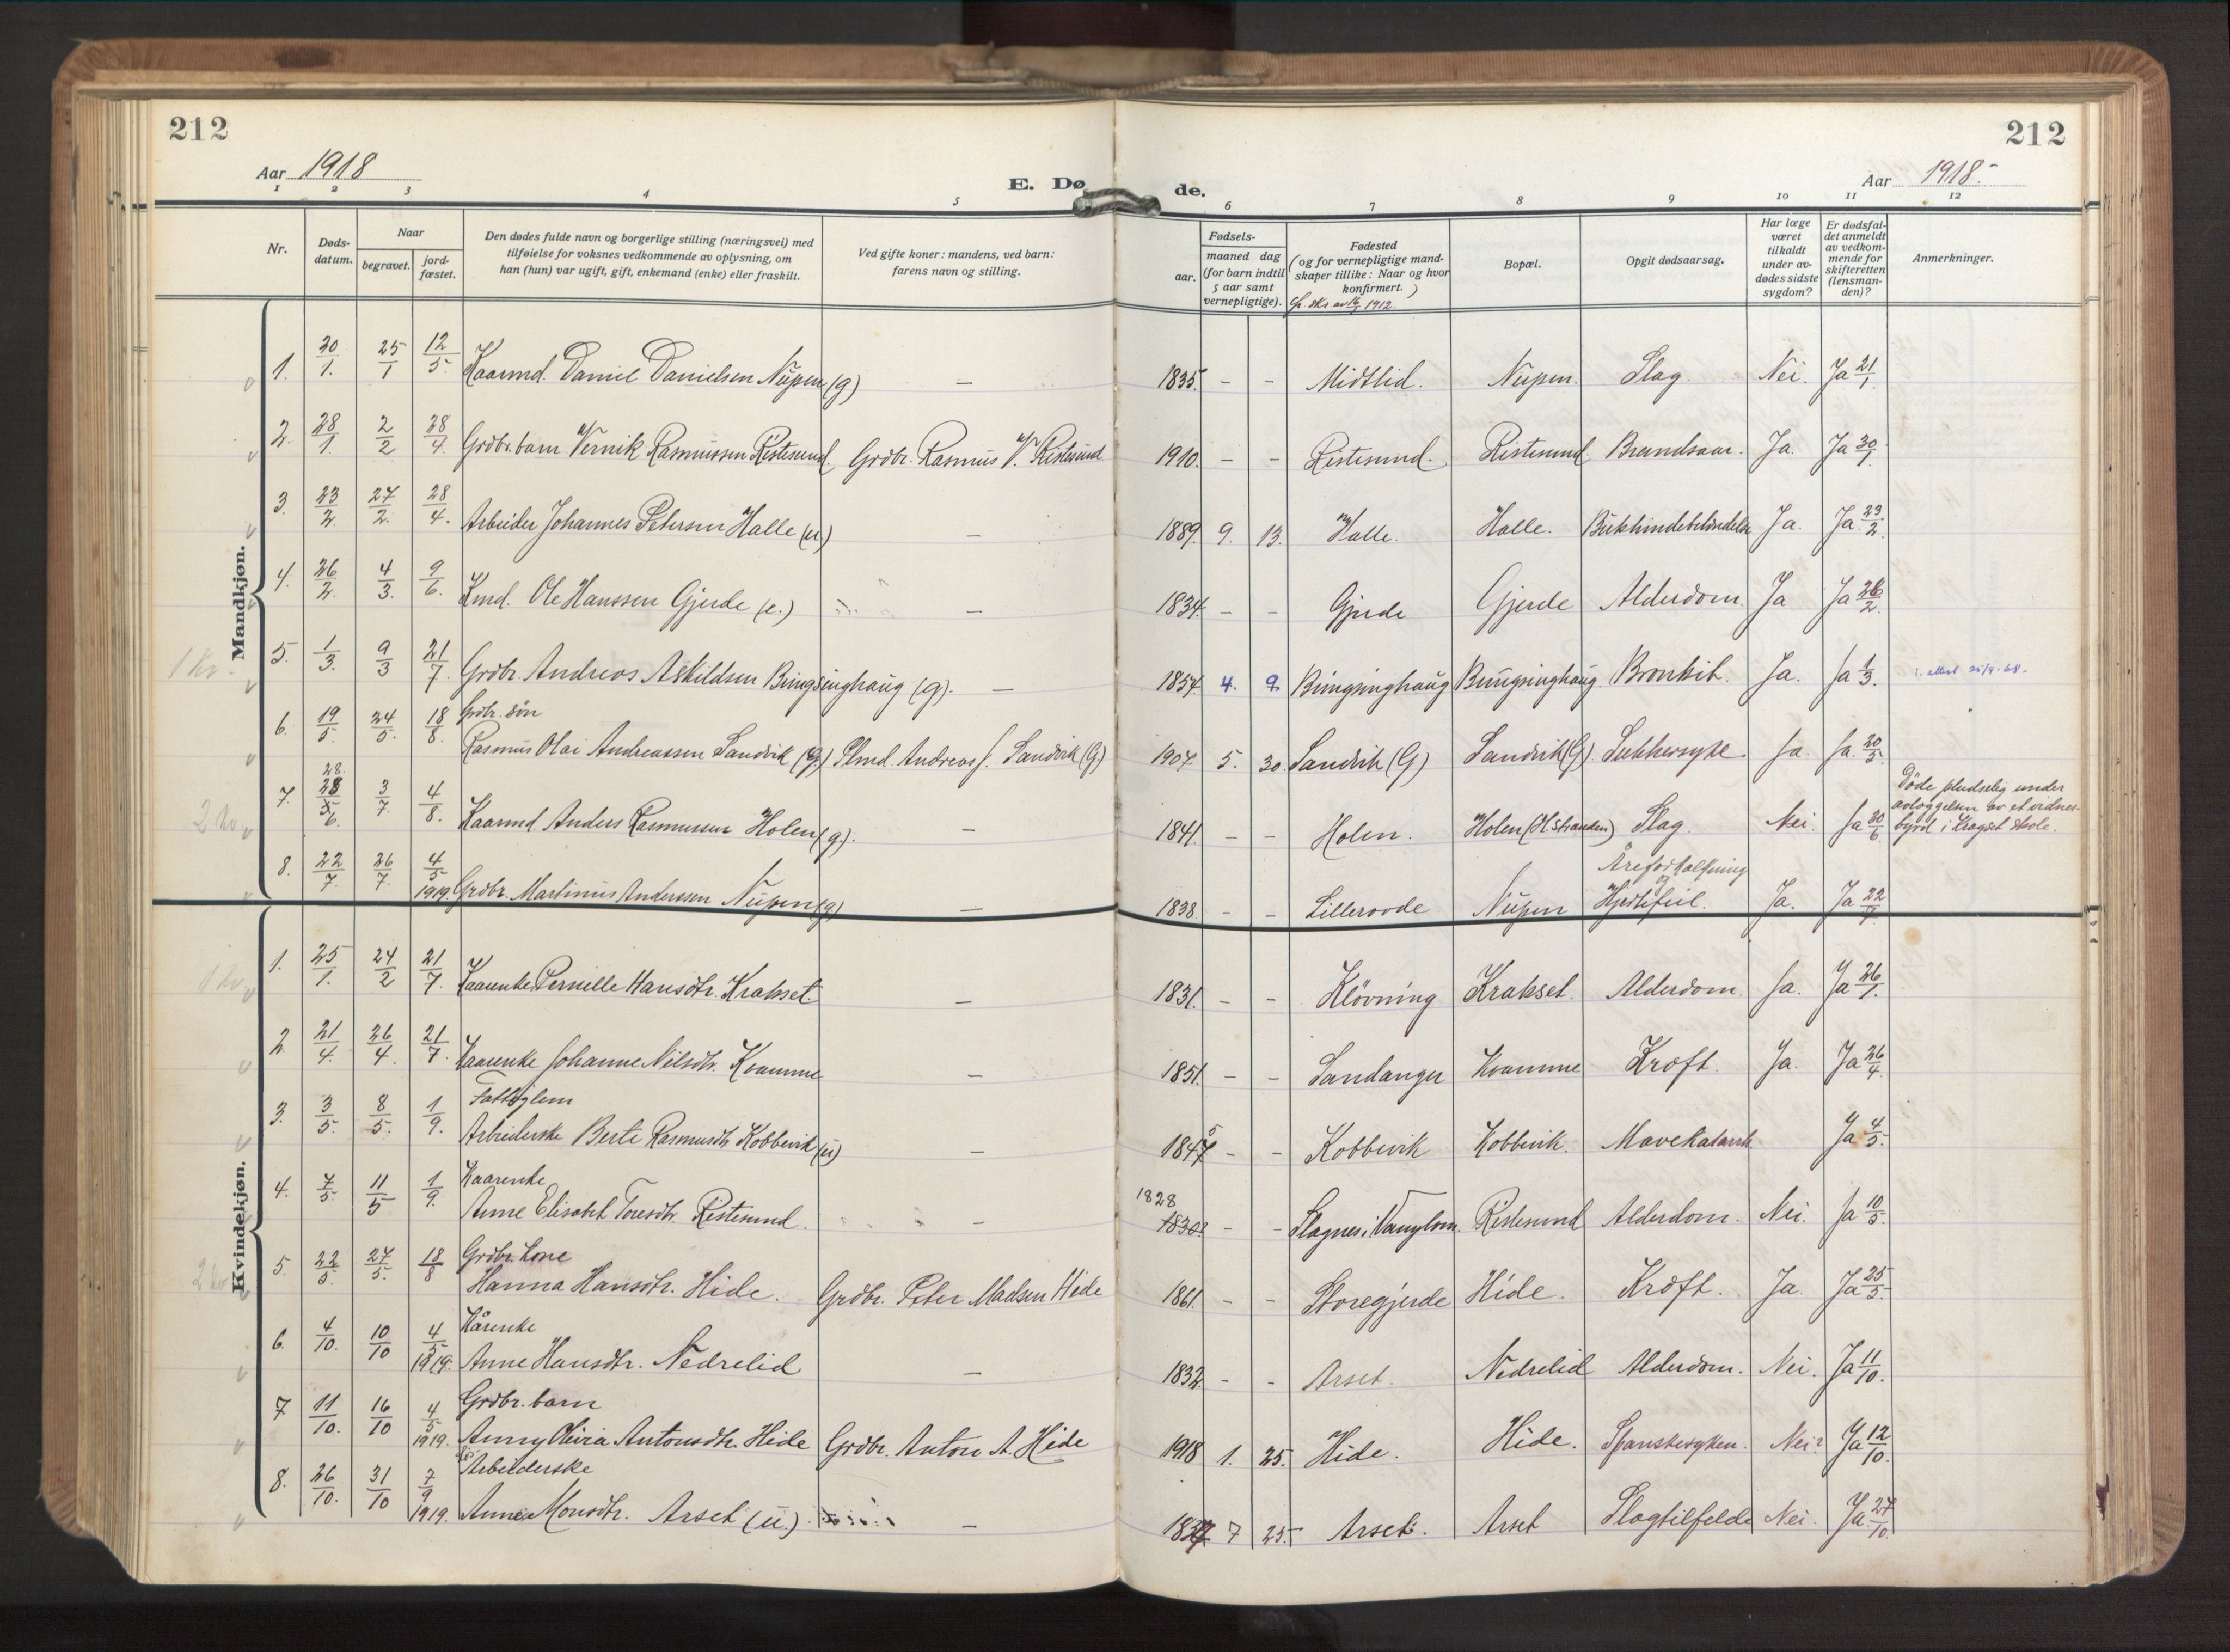 212
212
Aar 1918
E. Dø
de.
Aar 1918.
1 2 3 4 5 6 7 8 9 10 11 12
Nr.
Døds-
datum.
Naar
begravet.
jord-
fæstet.
Den dødes fulde navn og borgerlige stilling (næringsvei) med
tilføielse for voksnes vedkommende av oplysning, om
han (hun) var ugift, gift, enkemand (enke) eller fraskilt.
Ved gifte koner: mandens, ved barn:
farens navn og stilling.
Fødsels-
aar.
maaned dag
(for barn indtil
5 aar samt
vernepligtige).
Fødested
(og for vernepligtige mand-
skaper tillike: Naar og hvor
konfirmert.)
1912.
Bopæl.
Opgit dødsaarsag.
Har læge
været
tilkaldt
under av-
dødes sidste
sygdom?
Er dødsfal-
det anmeldt
av vedkom-
mende for
skifteretten
(lensman-
den)?
Anmerkninger.
Mandkjøn.
1. 20/1. 25/1 12/5. Kaarmd. Daniel Danielsen Nupen (g) — 1835 - - Midtlid. Nupen. Slag. Nei. Ja 21/1.
2. 28/1. 2/2 28/4. Grdbr. barn Vernik Rasmussen Ristesund. Grdbr. Rasmus V. Ristesund 1910. - - Ristesund. Ristesund Brandsaar. Ja. Ja 30/1.
3. 23/2. 27/2. 28/4. Arbeider Johannes Petersen Halle (u.) — 1889. 9. 13. Halle. Halle. Bukhindebetændelse Ja. Ja 23/2.
4. 26/2. 4/3. 9/6. Kmd. Ole Hanssen Gjerde (e.) — 1834. - - Gjerde Gjerde Alderdom. Ja Ja 26/2.
5. 1/3. 9/3 21/7. Grdbr. Andreas Askildsen Bringsinghaug (g). — 1854 4. 9. Bringsinghaug Bringsinghaug. Bronkit. Ja. Ja 1/3.
6. 19/5. 24/5. 18/8. Grdbr. søn
Rasmus Olai Andreassen Sandvik (G.) Plmd. Andreas J. Sandvik (G) 1907. 5. 30. Sandvik (G) Sandvik (G) Sukkersyke. Ja. Ja. 20/5.
7. 28/6. 3/7. 4/8. Kaarmd. Anders Rasmussen Holen (g.). — 1841. - - Holen. Holen (H. stranden) Slag. Nei. Ja 30/6
Døde pludselig under
avlæggelsen av et vidnes-
byrd i Kragset skole.
8. 22/7. 26/7. 4/5 1919. Grdbr. Martinus Anderssen Nupen (g) — 1838 - - Lillerovde Nupen Åreforkalkning
og
Hjertefeil. Ja. Ja 22/7.
Kvindekjøn.
1. 25/1. 24/2 21/7. Kaarenke Pernille Hansdtr. Krakset. — 1831. - - Kløvning Krakset. Alderdom. Ja. Ja 26/1.
2. 21/4. 26/4. 21/7. Kaarenke Johanne Nilsdtr. Kvamme — 1851. - - Sandanger Kvamme Kræft. Ja. Ja 26/4.
3. 3/5. 8/5. 1/9. Fattiglem
Arbeiderske Berte Rasmusdtr. Kobbevik (u) — 1847 5 - - Kobbevik Kobbevik. Mavekatarrh Ja 4/5.
4. 7/5. 11/5 1/9. Kaarenke
Anne Elisabet Toresdtr. Ristesund. — 1828 1830. - - Slagnes i Vanylven. Ristesund Alderdom. Nei. Ja 10/5.
5. 22/5. 27/5. 18/8 Grdbr. kone
Hanna Hansdtr. Hide. Grdbr. Peter Madsen Hide 1861. - - Storegjerde Hide. Kræft. Ja. Ja 25/5.
6. 4/10. 10/10 4/5 1919. Kårenke
Anne Hansdtr. Nedrelid — 1832 - - Arset. Nedrelid Alderdom. Nei. Ja 11/10.
7 11/10. 16/10 4/5 1919. Grdbr. barn
Anny Olivia Antonsdtr. Hide Grdbr. Anton A. Hide 1918 1. 25. Hide. Hide. Spanskesyken. Nei? Ja 12/10.
8. 26/10. 31/10 7/9 1919. Arbeiderske
Anne Monsdtr. Arset (u.) — 1837 7 25. Arset. Arset Slagtilfelde Nei. Ja 27/10.